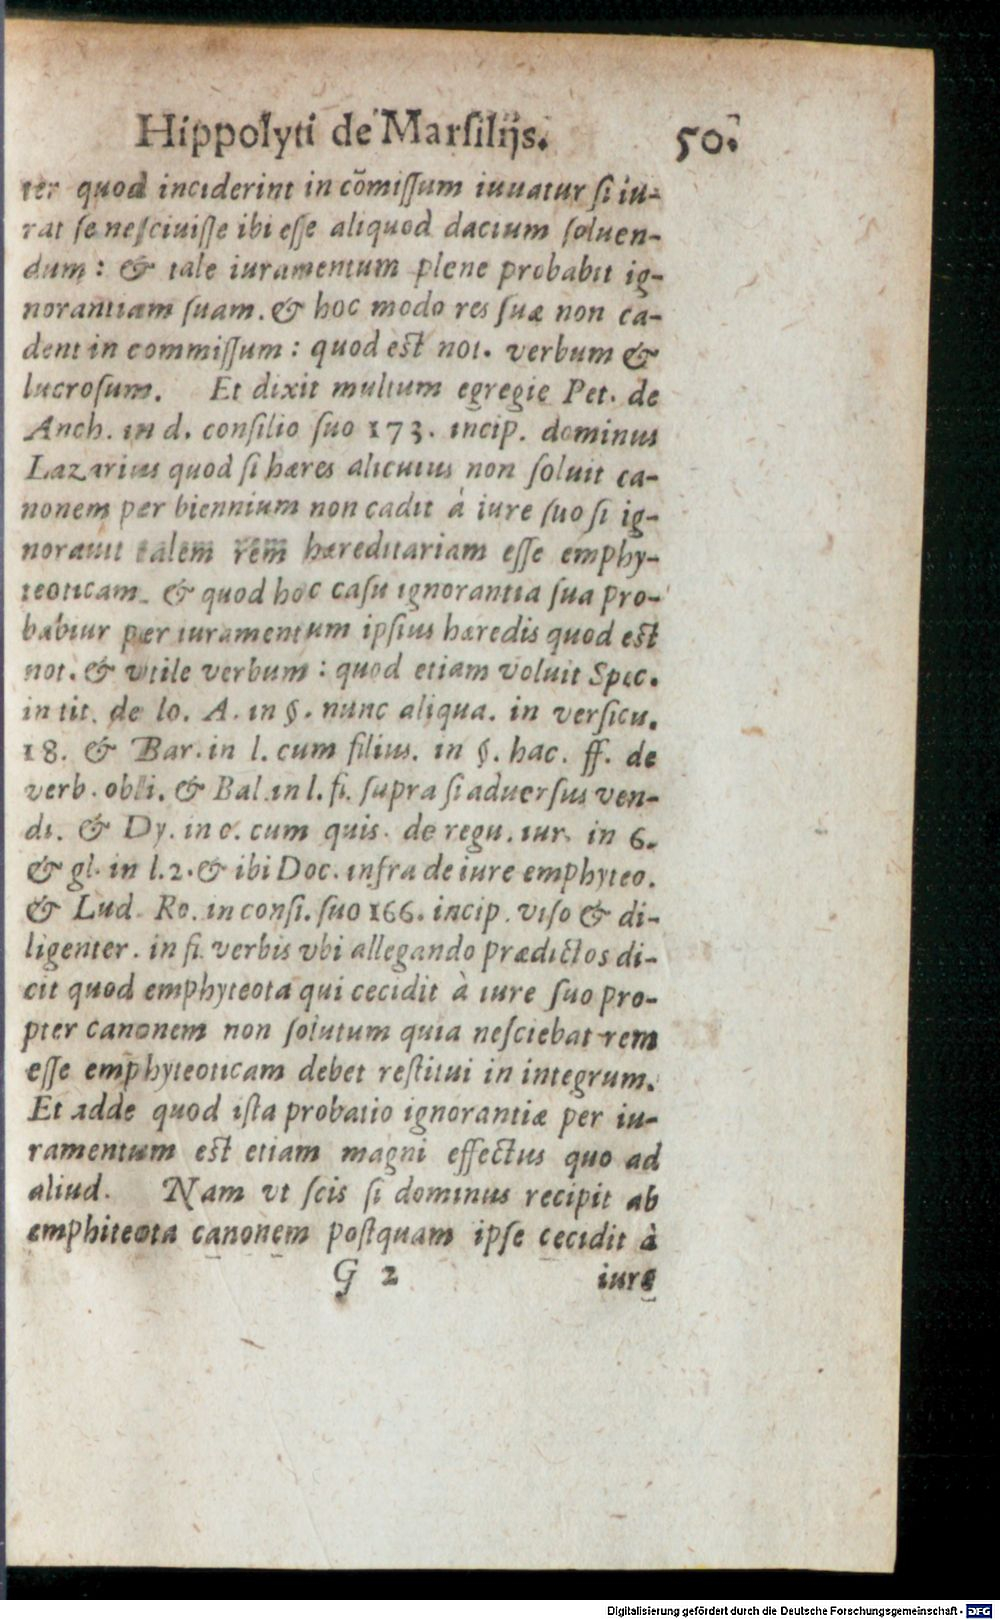 Hippolyti de Marſilijs. 50.
ter quod inciderint in cõmiſſum iuuatur ſi iu-
rat ſe neſciuiſſe ibi eſſe aliquod dacium ſoluen-
dum : & tale iuramentum plene probabit ig-
norantiam ſuam. & hoc modo res ſuæ non ca-
dent in commiſſum : quod eſt not. verbum &
lucroſum. Et dixit multum egregie Pet. de
Anch. in d. conſilio ſuo 173. incip. dominus
Lazarius quod ſi hæres alicuius non ſoluit ca-
nonem per biennium non cadit à iure ſuo ſi ig-
norauit talem rem hæreditariam eſſe emphy-
teoticam. & quod hoc caſu ignorantia ſua pro-
babtur per iuramentum ipſius hæredis quod eſt
not. & vtile verbum : quod etiam voluit Spec.
in tit. de lo. A. in §. nunc aliqua. in verſicu.
18. & Bar. in l. cum filius. in §. hac. ff. de
verb. obli. & Bal. in l. fi. ſupra ſi aduerſus ven-
di. & Dy. in c. cum quis. de regu. iur. in 6.
& gl. in l. 2. & ibi Doc. infra de iure emphyteo.
& Lud. Ro. in conſi. ſuo 166. incip. viſo & di-
ligenter. in fi. verbis vbi allegando prædictos di-
cit quod emphyteota qui cecidit à iure ſuo pro-
pter canonem non ſolutum quia neſciebat rem
eſſe emphyteoticam debet reſtitui in integrum.
Et adde quod iſta probatio ignorantiæ per iu-
ramentum eſt etiam magni effectus quo ad
aliud. Nam vt ſcis ſi dominus recipit ab
emphiteota canonem poſtquam ipſe cecidit à
G 2 iure
Digitalisierung gefördert durch die Deutsche Forschungsgemeinschaft - DFG